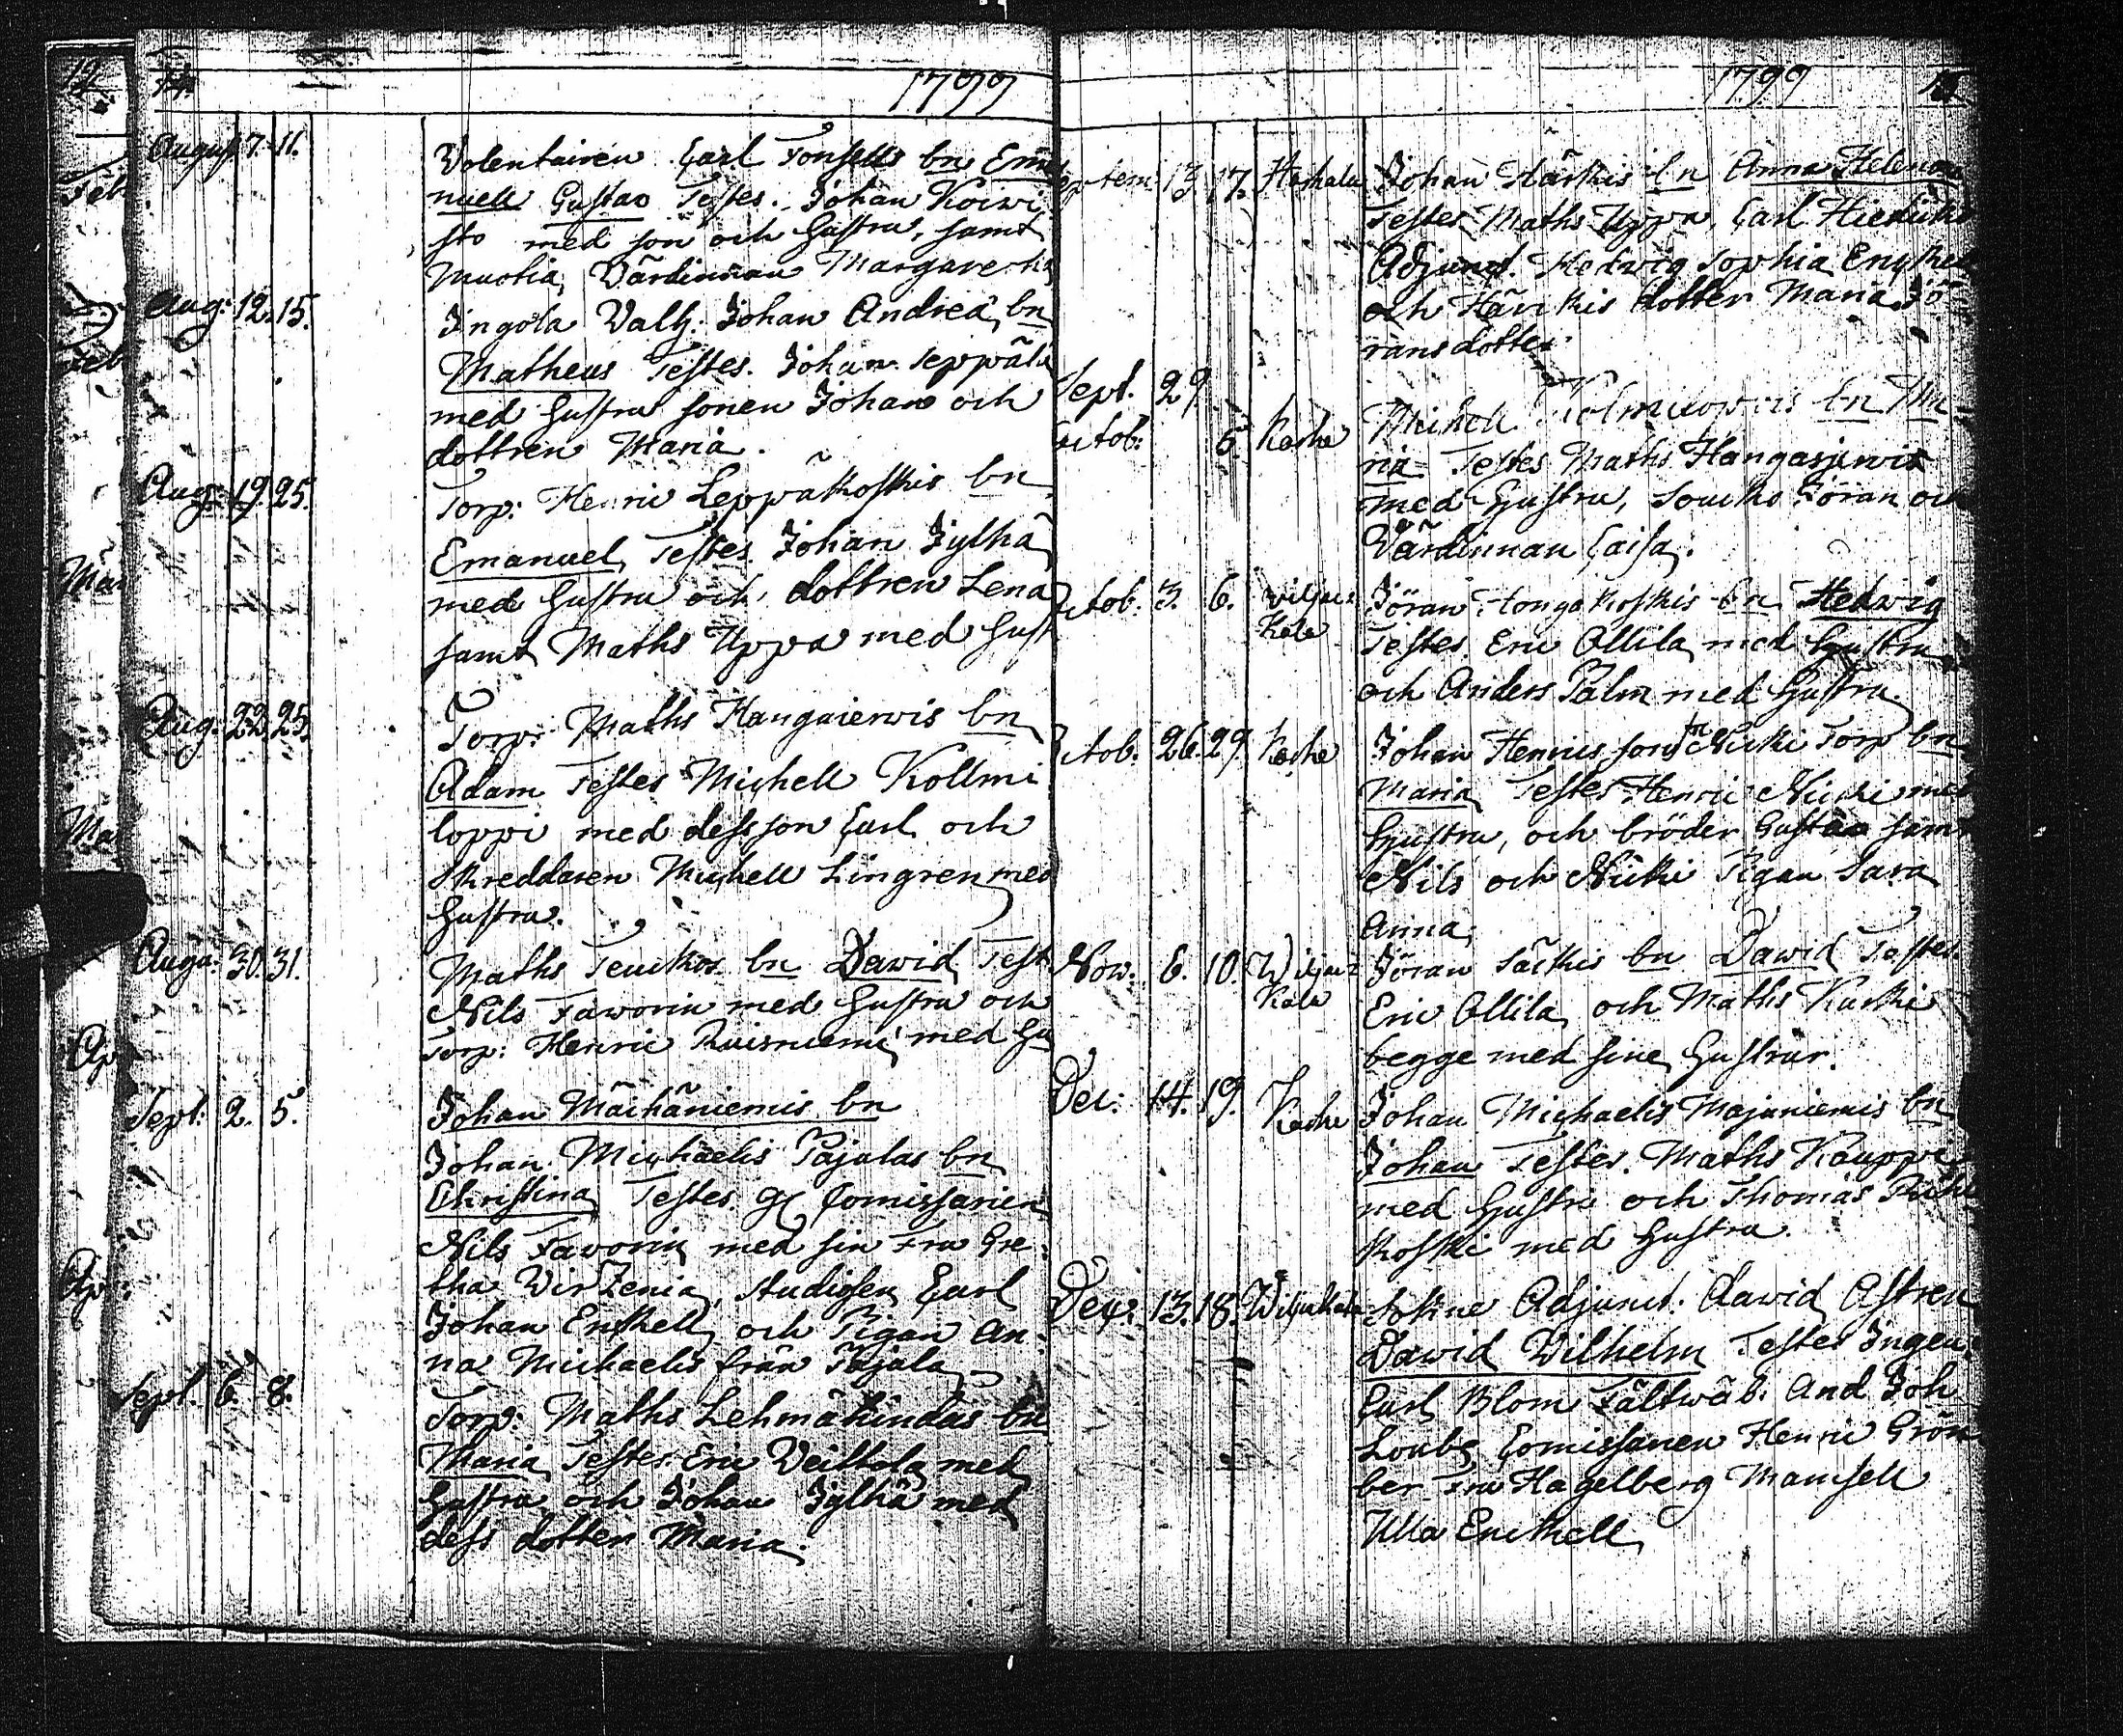 14. 1799
August 7. 11. Volentairen Carl Tonsells bn Ema
nuell Gustav Testes. Johan Koivi
sto med son och hustru, samt
Muotia, Värdinnan Margaretha
Aug: 12. 15. Ingola Valb: Johan Andreæ bn
Matheus Testes. Johan Seppälä
med hustru sonen Johan och
dottren Maria.
Aug: 19. 25. Torp: Henric Leppäkoskis bn
Emanuel, Testes Johan Jylhä
med hustru och dottren Lena
samt Maths Uppa med hust
Aug. 22. 25. Torp: Maths Hangaierwis bn
Adam Testes Michell Kollmi
loppi med dess son Carl och
Skreddaren Michell Lingren med
hustru.
Augu: 30. 31. Maths Teuckos bn David Test
Nils Faworin med hustru och
Torp: Henric Ruisniemi med hu
Sept: 2. 5. Johan Mäihäniemis bn
Johan Michaelis Pajulas bn
Christina Testes Comissarien
Nils Faworin med sin Fru Gre:
tha Wirzenia, Studiosen Carl
Johan Enckell och Pigan An:
na Michaelis från Pajula
Sept. 6. 8. Torp: Maths Lehmähindas bn
Maria Testes Eric Veittola med
hustru och Johan Jylhä med
dess dotter Maria.
1799 15
Septem: 13. 17. Haskala Johan Härkis bn Anna Helena
Testes Maths Uppa, Carl
Adjunct. Hedwig Sophia
och Härckis dotter Maria Jö
ransdotter
Sept. 29
Octob: 6. Koske Michell Kolmilowis bn Ma-
ria Testes Maths Hangasjerwis
med hustru, Soucko Jöran och
Värdinnan Caisa.
Octob. 3. 6. Viljac:
Kala Jöran Hongokoskis bn Hedwig
Testes Eric Ollila med hustru
och Anders Palm med hustru.
Octob. 26. 29 Koske Johan Henricsson Nicki Torp bn
Maria Testes Henric Nicki med
hustru, och bröder Gustav samt
Nils och Nicki Pigan Sara
Anna,
Nov. 6. 10. Wiljac:
Kala Jöran Säikis bn David Testes
Eric Ollila och Maths Karki
begge med sine hustrur.
Dec: 14. 19. Koske Johan Michaelis Majaniemis bn
Johan Testes. Maths Kauppi
med hustru och Thomas
koski med hustru.
Dec: 13. 18. Wiljakkala Adjunct. David Astren
David Wilhelm Testes Ingen:
Carl Blom Fältwäb: And Joh
Comissarien Henric Grön
ber Fru Hagelberg Mamsell
Ulla Enckell